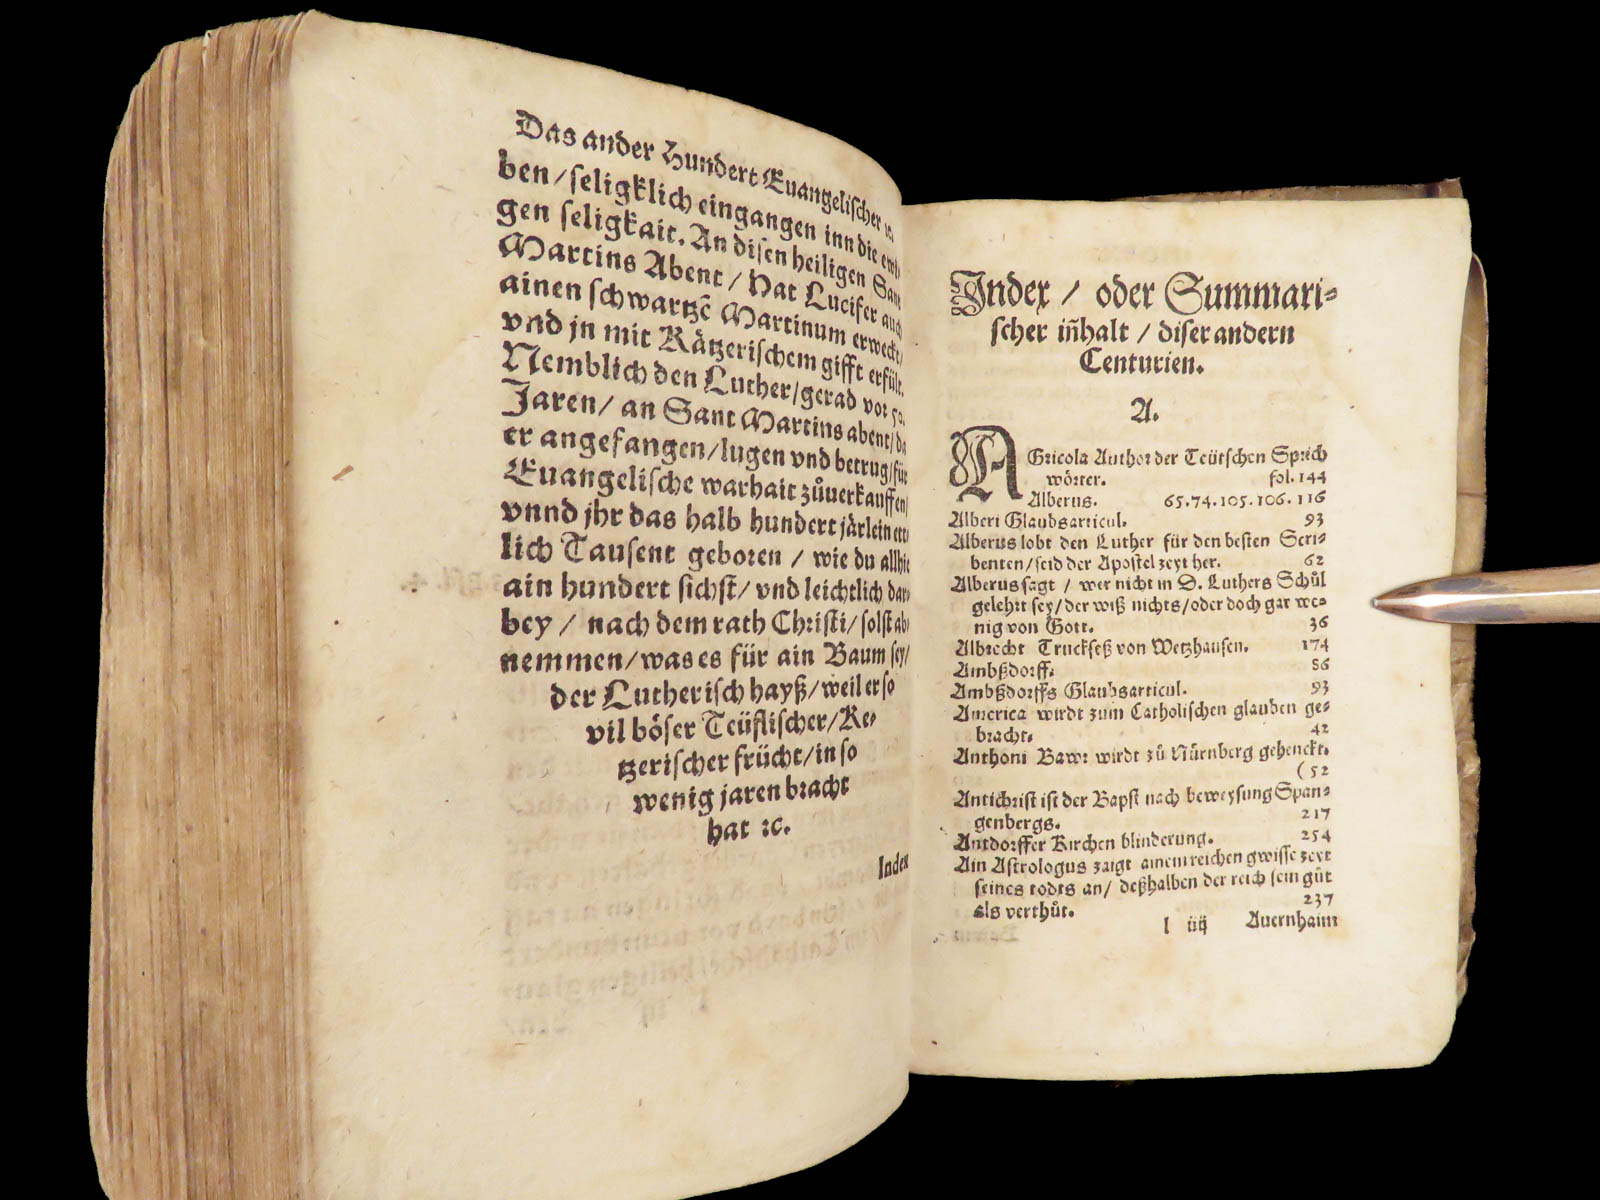 Das ander Hundert Euangelischer
ben / seligklich eingangen inn die ewi
gen seligkait. An disen heiligen Sant
Martins Abent / Hat Lucifer auch
ainen schwartzē Martinum erweckt /
vnd jn mit Kätzerischem gifft erfült.
Nemblich den Luther / gerad vor 50.
Jaren / an Sant Martins abent / da
er angefangen / lugen vnd betrug / für
Euangelische warhait zůuerkauffen /
vnnd jhr das halb hundert järlein ett
lich Tausent geboren / wie du allhie
ain hundert sichst / vnd leichtlich dar
bey / nach dem rath Christi / solst ab
nemmen / was es für ain Baum sey /
der Lutherisch hayß / weil er so
vil böser Teüflischer / Ke-
tzerischer frücht / in so
wenig jaren bracht
hat ꝛc.
Index
Index / oder Summari-
scher iñhalt / diser andern
Centurien.
A.
AGricola Author der Teütschen Sprich
wörter. fol. 144
Alberus. 65. 74. 105. 106. 116
Alberi Glaubsarticul. 93
Alberus lobt den Luther für den besten Scri-
benten / seid der Apostel zeyt her. 62
Alberus sagt / wer nicht in D. Luthers Schůl
gelehrt sey / der wiß nichts / oder doch gar we-
nig von Gott. 36
Albrecht Truckseß von Wetzhausen. 174
Ambßdorff. 86
Ambßdorffs Glaubsarticul. 93
America wirdt zum Catholischen glauben ge-
bracht. 42
Anthoni Bawr wirdt zů Nürnberg gehenckt.
( 52
Antichrist ist der Bapst nach beweysung Span-
genbergs. 217
Antdorffer Kirchen blinderung. 254
Ain Astrologus zaigt ainem reichen gwisse zeyt
seines todts an / deßhalben der reich sein gůt
als verthůt. 237
l iiij Auernhaim